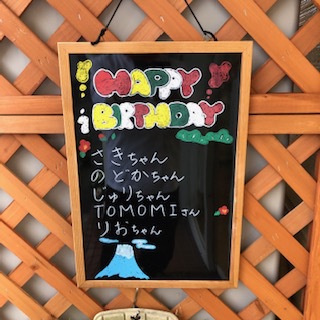 HAPPY
BIRTHDAY
さきちゃん
のどかちゃん
じゅりちゃん
TOMOMIさん
りおちゃん